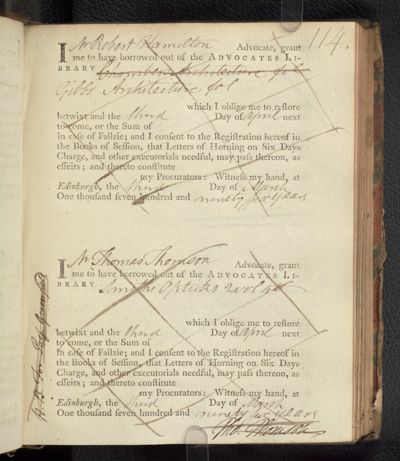 114.
I Mr Robert Hamilton Advocate, grant
me to have borrowed out of the ADVOCATES LI-
BRARY Chambers Architecture fol
Gibbs Architecture fol
which I oblige me to restore
betwixt and the third Day of April next
to come, or the Sum of
in case of Failzie; and I consent to the Registration hereof in
the Books of Session, that Letters of Horning on Six Days
Charge, and other executorials needful, may pass thereon, as
effeirs; and thereto constitute
my Procurators: Witness my hand, at
Edinburgh, the third Day of March
One thousand seven hundred and ninety two years
I Mr Thomas Thomson Advocate, grant
me to have borrowed out of the ADVOCATES LI-
BRARY Smiths Opticks 2 vol 4to
which I oblige me to restore
betwixt and the third Day of April next
to come, or the Sum of
in case of Failzie; and I consent to the Registration hereof in
the Books of Session, that Letters of Horning on Six Days
Charge, and other executorials needful, may pass thereon, as
effeirs; and thereto constitute
my Procurators: Witness my hand, at
Edinburgh, the third Day of March
One thousand seven hundred and ninety two years
Tho. Thomson